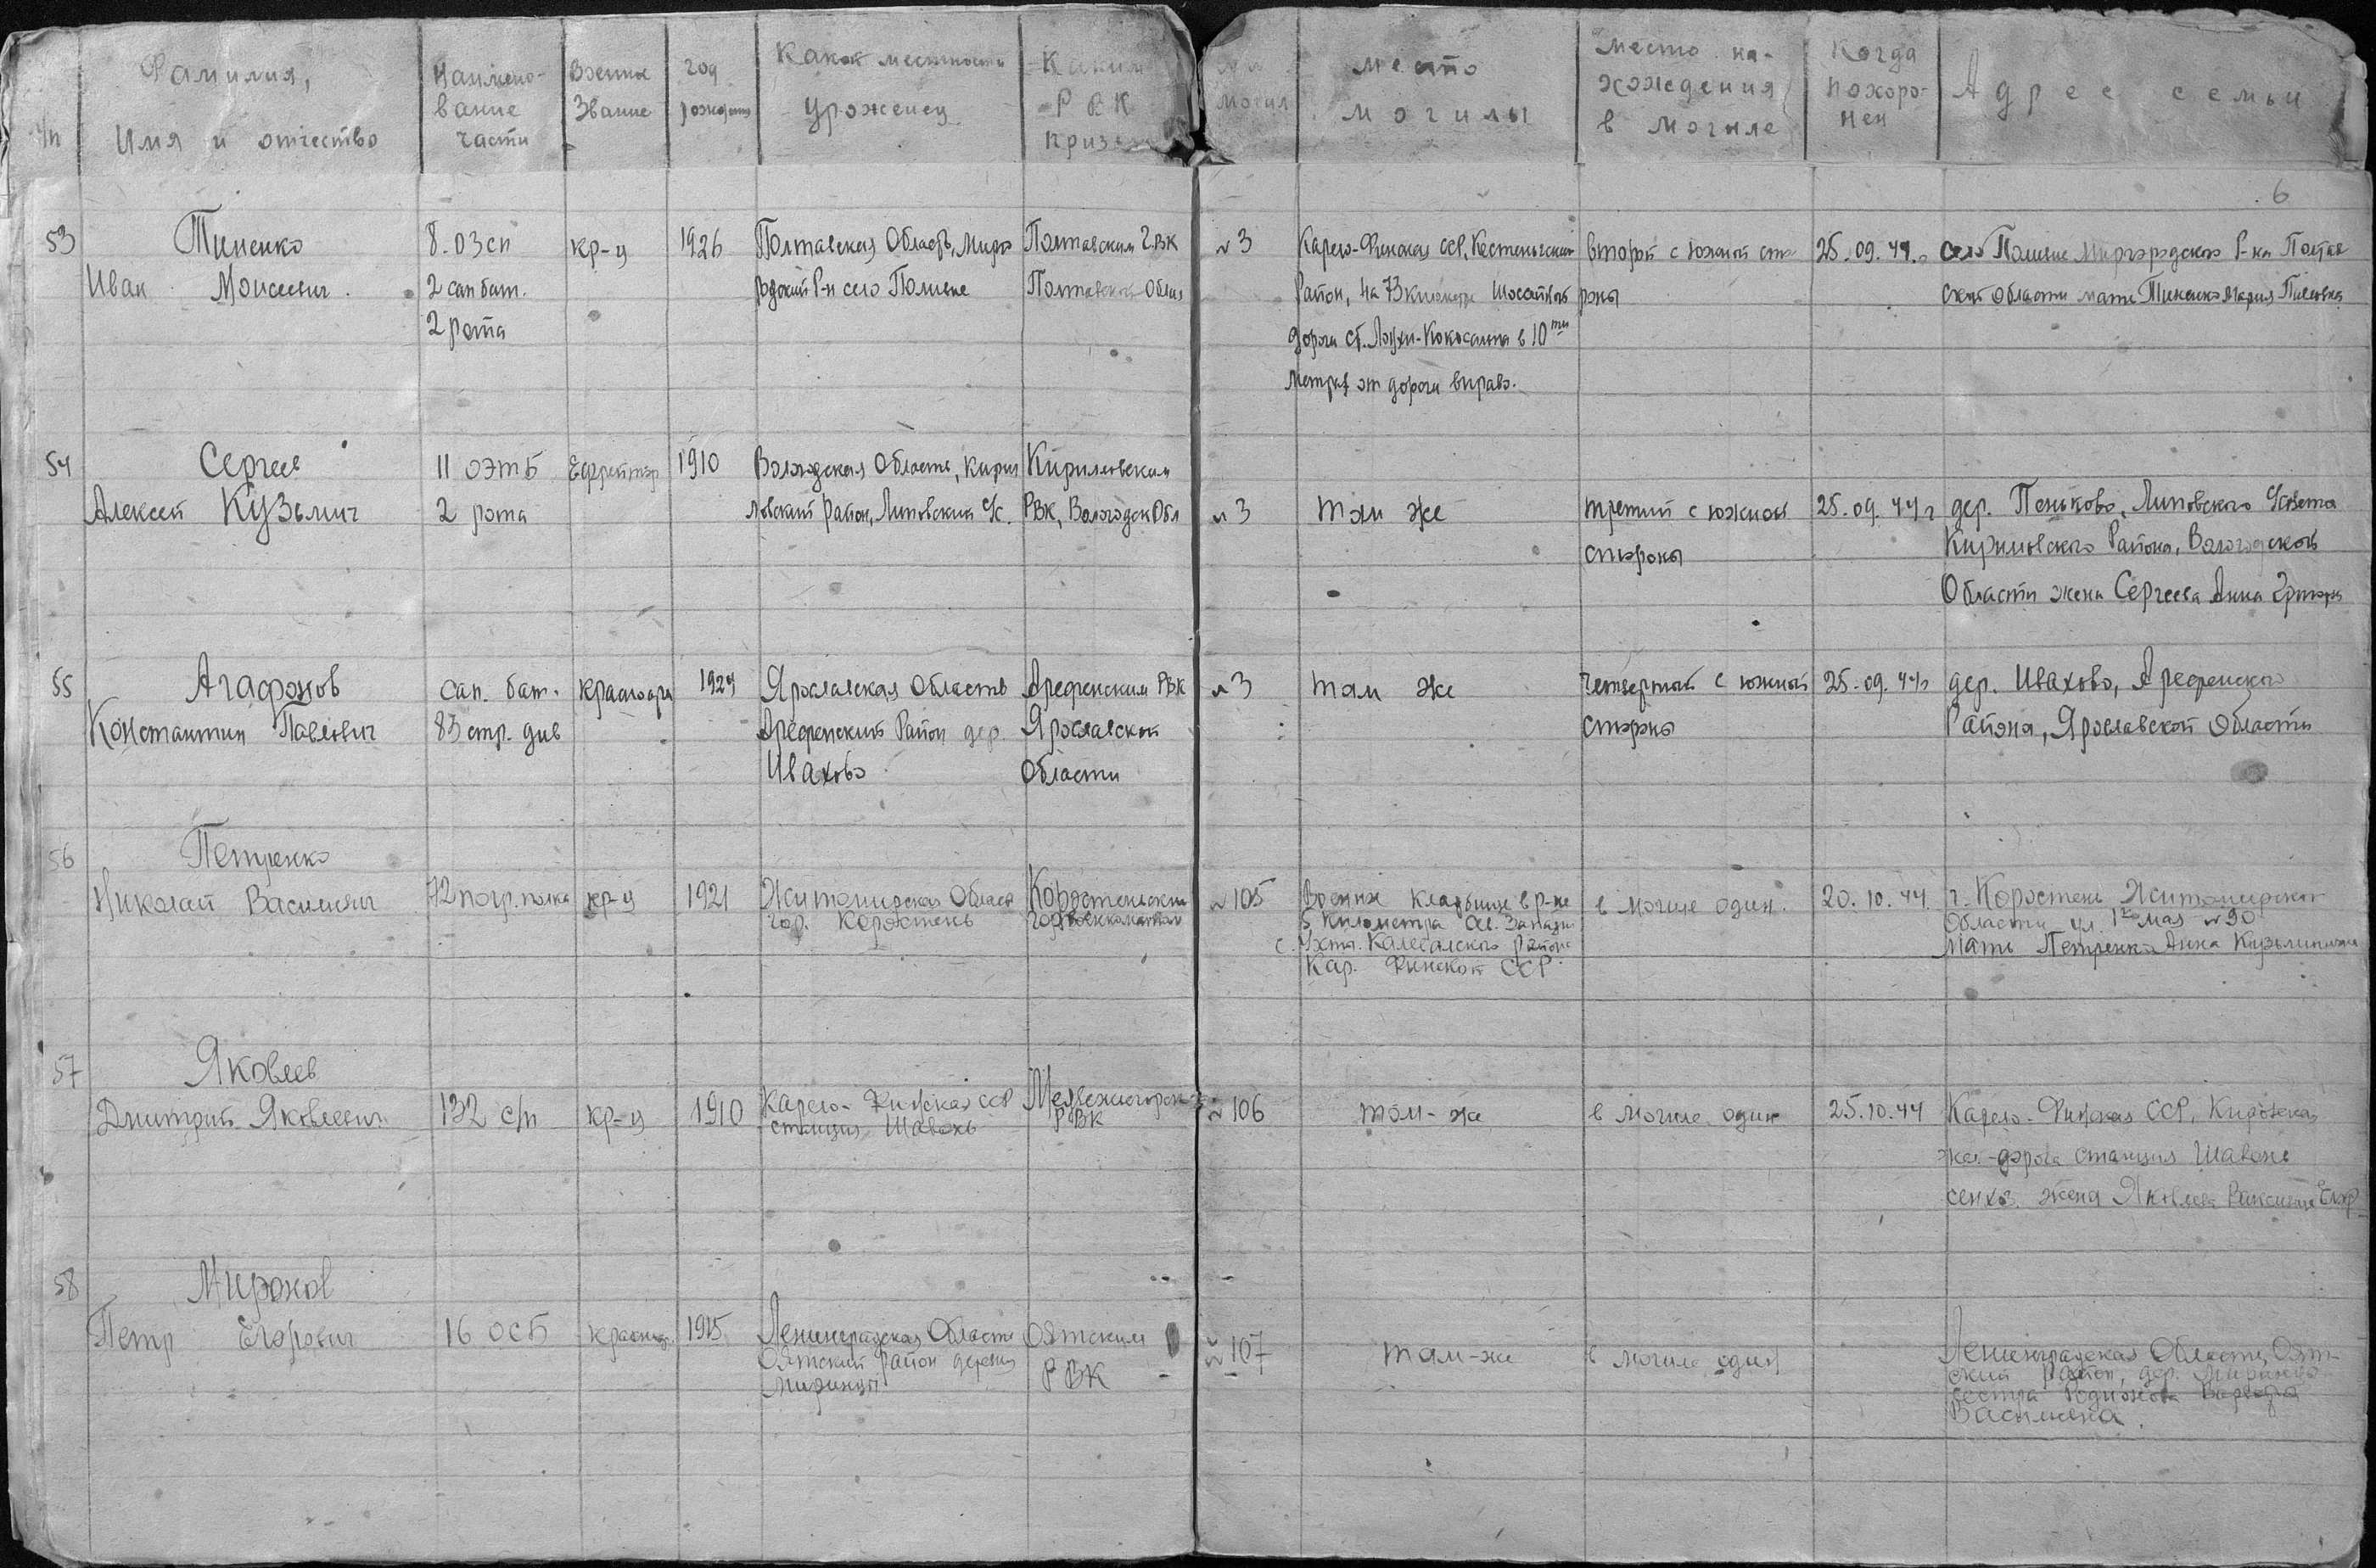 Фамилия,
Имя и отчество
п/п
Наимено-
вание
части
Военное
Звание
год
рождения
Какой местности
Уроженец
Каким
РВК
призван
могил
место
могилы
место на-
хождения
в могиле
Когда
похоро-
нен
Адрес семьи
6
53
Тиненко
Иван Моисеевич.
8. ОЗСП
2 сап бат.
2 рота
кр-ц
1926
Полтавская Область, Мирго
родский Р-н село Полиене
Полтавским Г.ВК
Полтавской Облас
№ 3
Карело-Финская ССР, Кестеньгский
Район, на 73 километре Шоссейной
дороги ст. Лоухи-Кокосальма в 10ти
метрах от дороги вправо.
второй с южной сто
роны
25.09.44г.
село Полиене Миргородского Р-на Полтав
ской Области мать Тиненко Мария Павловна
54
Сергеев
Алексей Кузьмич
11 ОЭТБ
2 рота
Ефрейтор
1910
Вологодская Область, Кирил
ловский район, Липовский с/с.
Кирилловским
РВК, Вологодск Обл
№ 3
там же
третий с южной
стороны
25.09.44г
дер. Пеньково, Липовского с/совета
Кирилловского Района, Вологодской
Области жена Сергеева Анна Григорь
55
Агафонов
Константин Павлович
сап. бат.
83 стр. див
красноарм
1924
Ярославская Область
Арефенский Район дер.
Ивахово
Арефенским РВК
Ярославской
области
№ 3
там же
четвертый с южной
стороны
25.09.44г
дер. Ивахово, Арефенского
Района, Ярославской области
56
Петренко
Николай Васильевич
72 погр. полка
кр-ц
1921
Житомирская Област
гор. Коростень
Коростеньским
горвоенкоматом
№ 105
Военное кладбище в р-не
5 километра Сев. Западн
с. Ухта. Калевалского района
Кар. Финской ССР.
в могиле один.
20.10.44
г. Коростень Житомирской
Области ул. 1го мая № 90
мать Петренко Анна Кузьминична
57
Яковлев
Дмитрий Яковлевич
132 с/п
кр-ц
1910
Карело-Финская ССР
станция Шавань
Медвежегорск
РВК
№ 106
там-же
в могиле один
25.10.44
Карело-Финская ССР, Кировская
жел-дорога станция Шавань
жена Яковлева
58
Миронов
Петр Егорович
16 ОСБ
красноар.
1915
Ленинградская Область
Оятский район деревня
Оятским
РВК
№ 107
там-же
в могиле один
Ленинградская Область, Оят-
ский район, дер.
сестра Родионова Варвара
Васильевна.